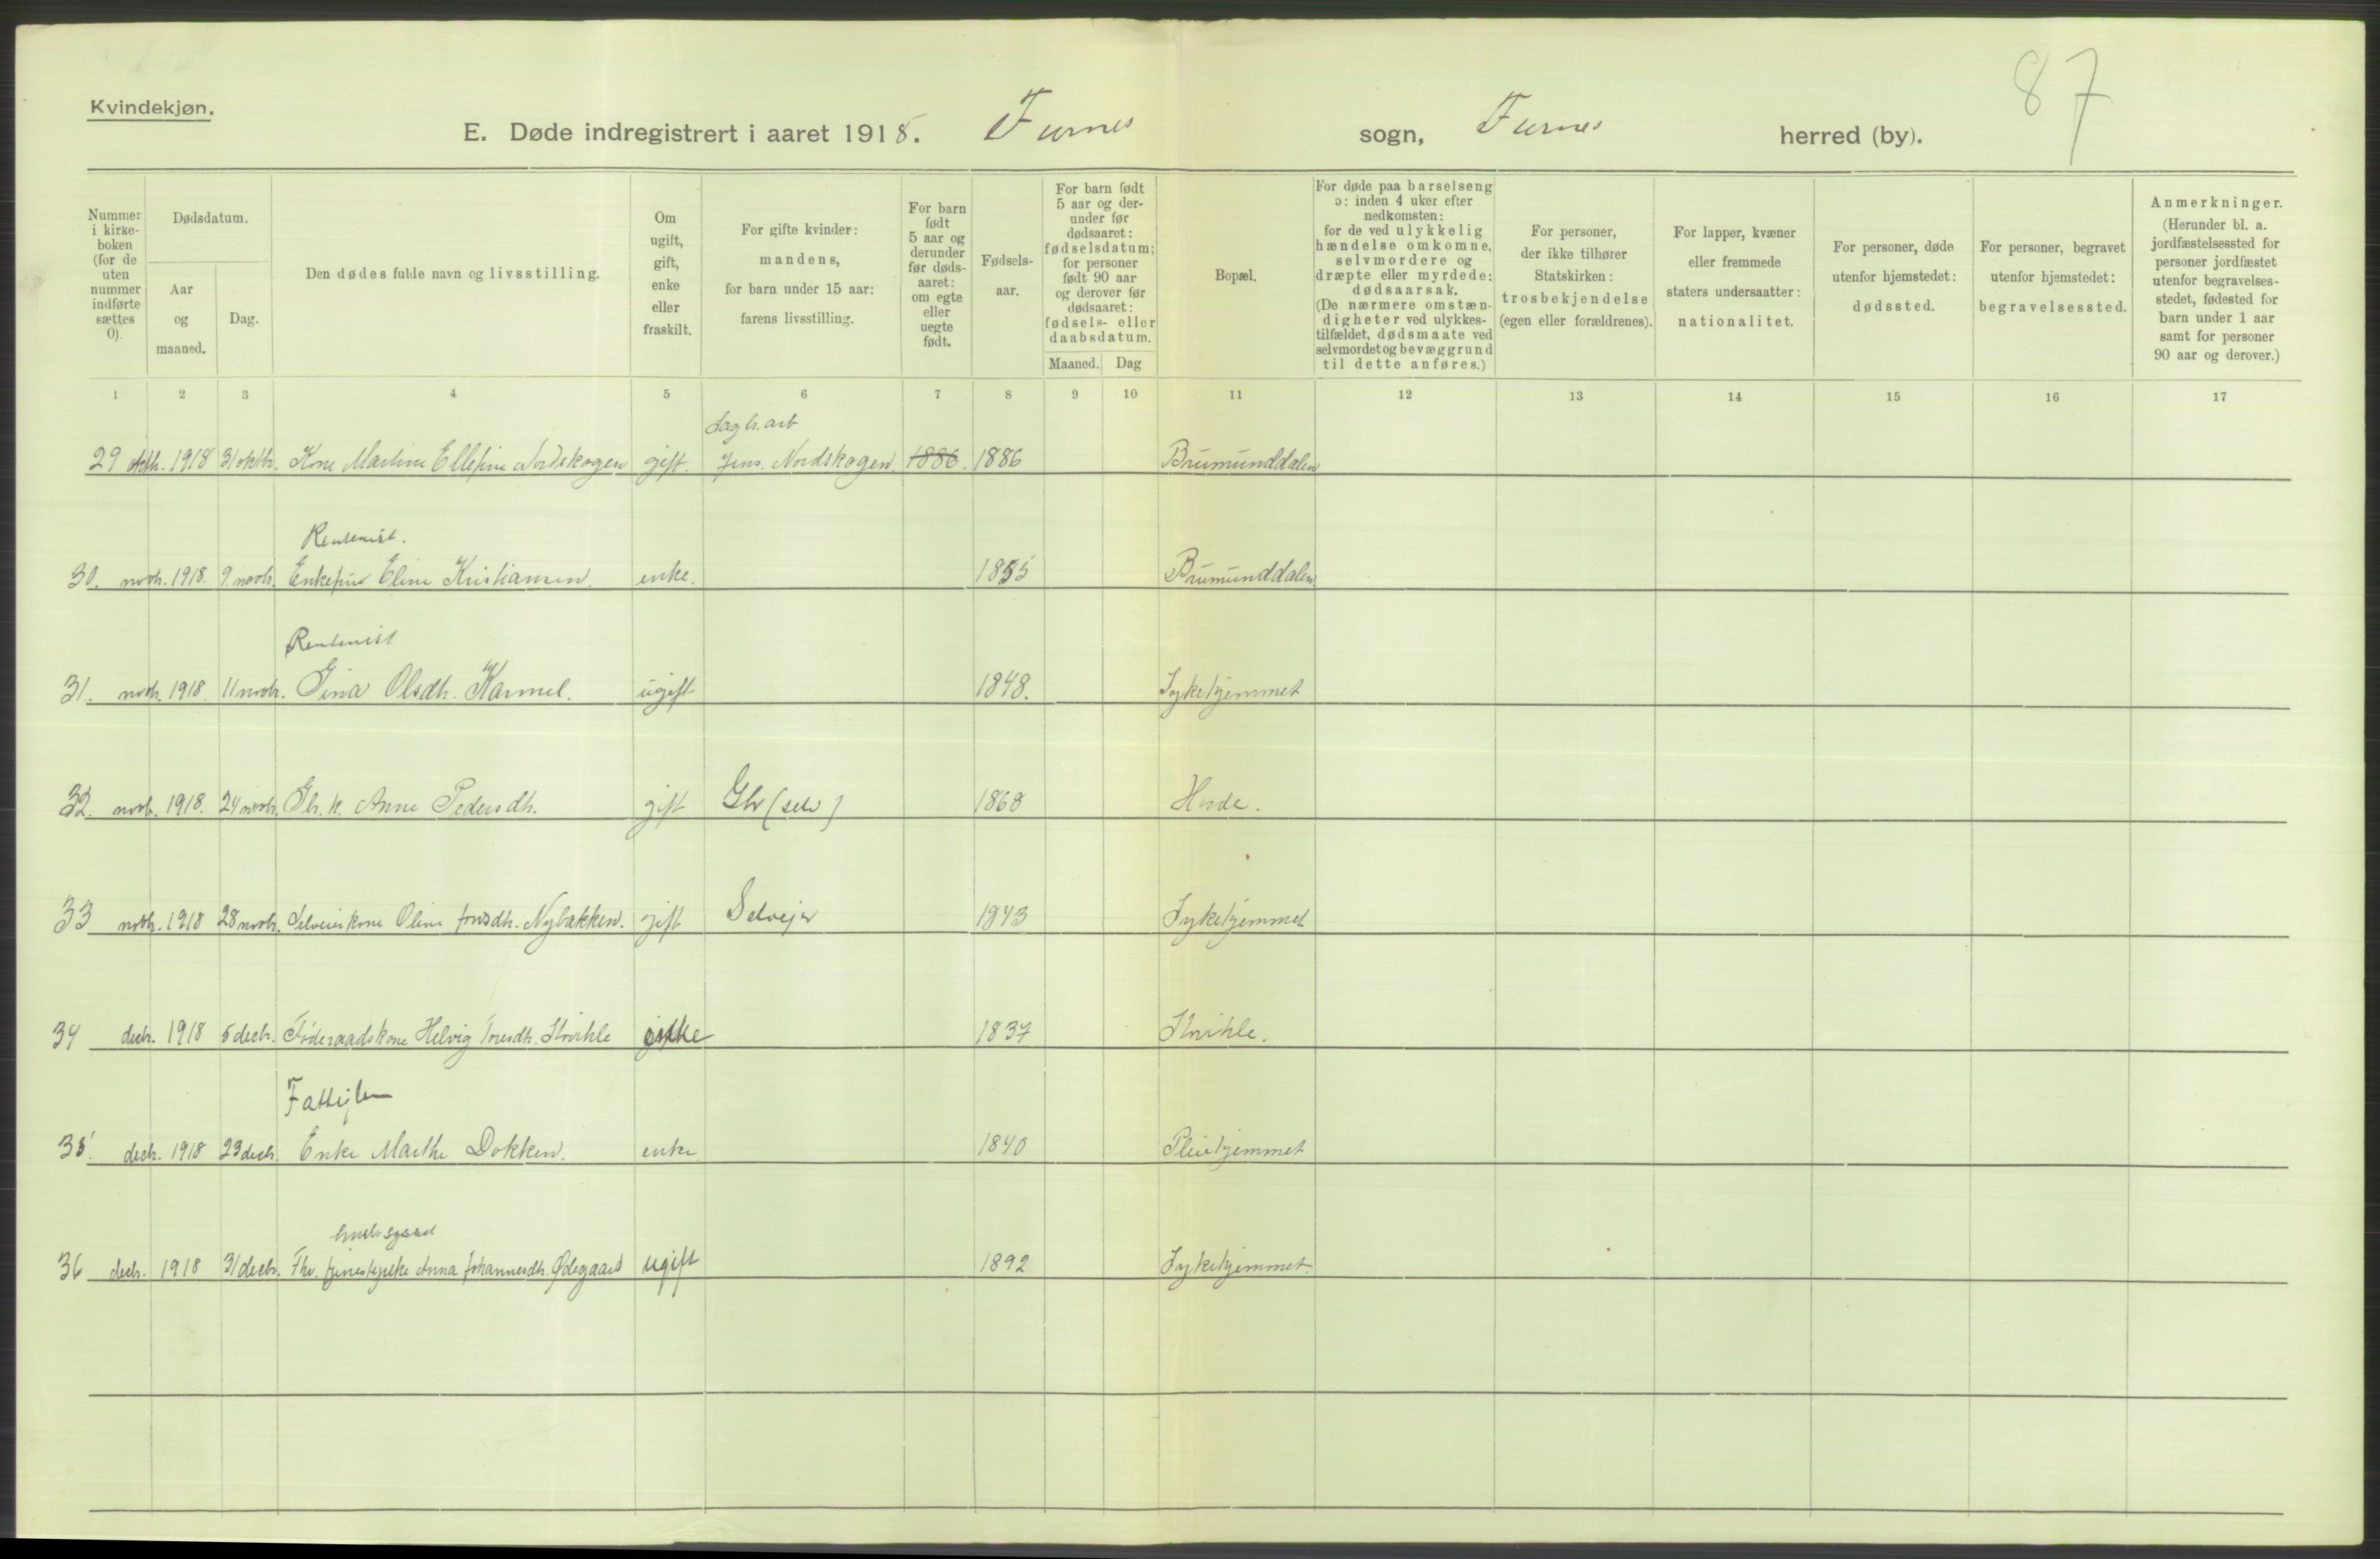 87
Kvindekjøn.
E. Døde indregistrert i aaret 1918. Furnes sogn, Furnes herred (by).
Nummer i kirkeboken (for de uten nummer indførte sættes 0).
Dødsdatum.
Aar og maaned.
Dag.
Den dødes fulde navn og livsstilling.
Om ugift, gift, enke eller fraskilt.
For gifte kvinder: mandens, for barn under 15 aar: farens livsstilling.
For barn født 5 aar og derunder før dødsaaret: om egte eller uegte født.
Fødselsaar.
For barn født 5 aar og derunder før dødsaaret: fødselsdatum; for personer født 90 aar og derover før dødsaaret: fødsels- eller daabsdatum.
Maaned. Dag
Bopæl.
For døde paa barselseng ɔ: inden 4 uker efter nedkomsten: for de ved ulykkelig hændelse omkomne, selvmordere og dræpte eller myrdede: dødsaarsak. (De nærmere omstændigheter ved ulykkestilfældet, dødsmaate ved selvmordet og bevæggrund til dette anføres.)
For personer, der ikke tilhører Statskirken: trosbekjendelse (egen eller forældrenes).
For lapper, kvæner eller fremmede staters undersaatter: nationalitet.
For personer, døde utenfor hjemstedet: dødssted.
For personer, begravet utenfor hjemstedet: begravelsessted.
Anmerkninger. (Herunder bl. a. jordfæstelsessted for personer jordfæstet utenfor begravelsesstedet, fødested for barn under 1 aar samt for personer 90 aar og derover.)
1 2 3 4 5 6 7 8 9 10 11 12 13 14 15 16 17
Sagb. arb
29 oktbr. 1918 31 oktbr. Kone Martine Ellefine Nordskogen gift. Jens Nordskogen. 1886. 1886 Brumunddalen
Rentenist.
30. novbr. 1918. 9 novbr. Enkefru Eline Kristiansen. enke. 1855 Brumunddalen
Rentenist
31. novbr. 1918. 11 novbr. Gina Olsdtr. Karmel. ugift 1848. Sykehjemmet
32. novbr. 1918. 24 novbr. Gbr. k. Anne Pedersdtr. gift Gbr (selv) 1868 Hode.
33 novbr. 1918 28 novbr. Selveierkone Oline Jonsdtr. Nybakken. gift Selvejer 1843 Sykehjemmet
34 decbr. 1918 5 decbr. Føderaadskone Helvig Toresdtr. enke 1837
Fattiglem
35. decbr. 1918 23 decbr. Enke Marthe Dokken. enke 1840 Pleiehjemmet
huslig syssel
36 decbr. 1918 31 decbr. Fhv. tjenestepike Anna Johannesdtr. Ødegaard ugift 1892 Sykehjemmet.